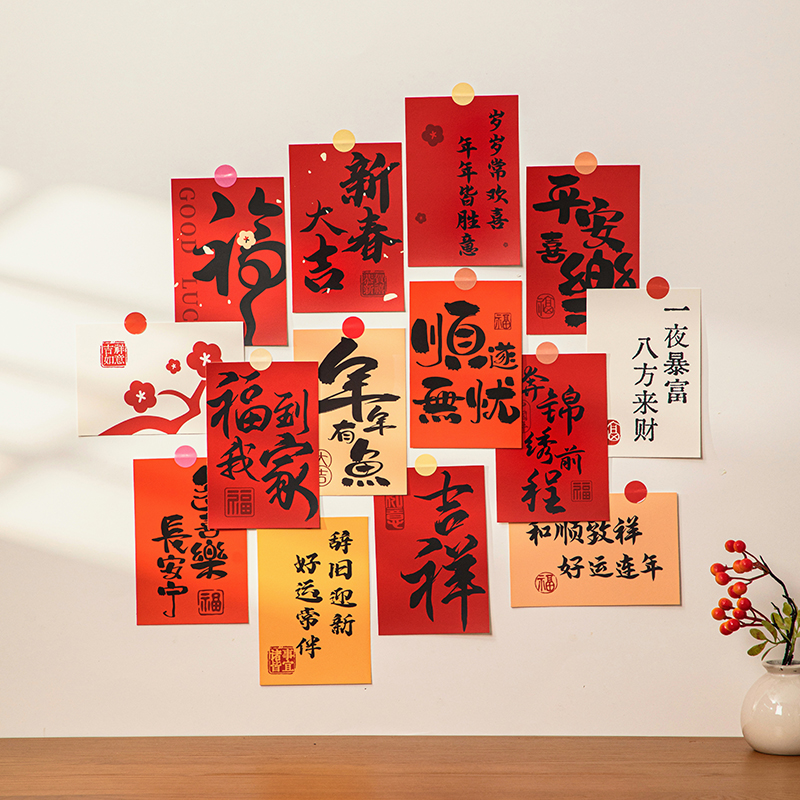 福
GOOD LUC
新春
大吉
岁岁常欢喜
年年皆胜意
平安
喜樂
吉祥
如意
福到
我家
年年
有魚
大吉
順遂
無忧
福
奔
锦绣
前程
福
一夜暴富
八方来财
喜樂
長安宁
福
辞旧迎新
好运常伴
诸事
皆宜
如意
吉祥
和顺致祥
好运连年
福